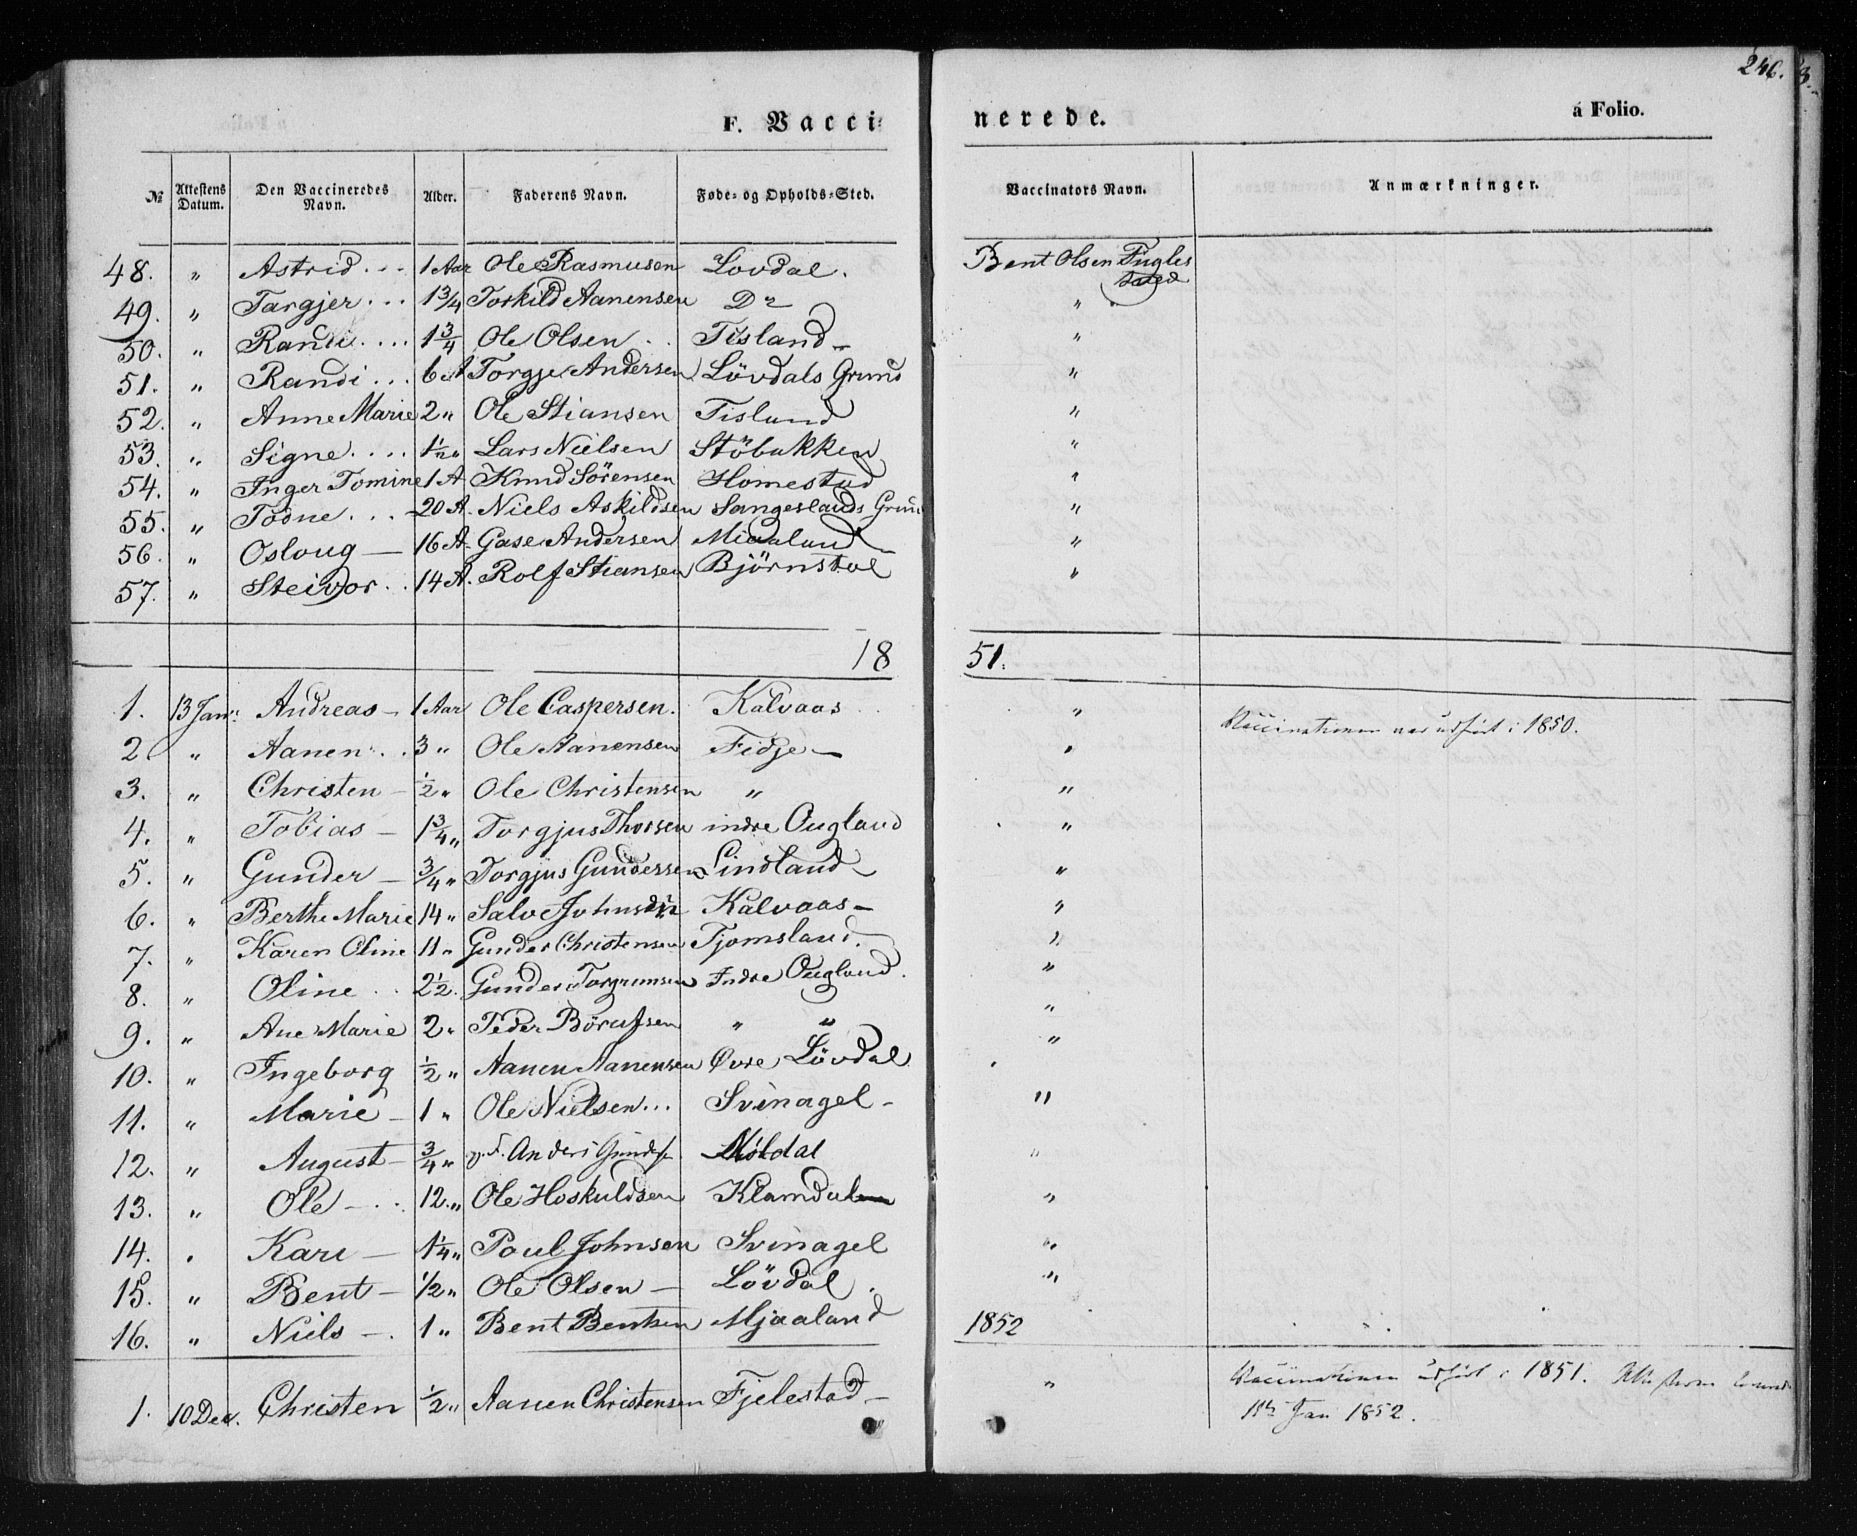 246.
F. Vaccinerede. á Folio.
№ Attestens Datum. Den Vaccineredes Navn. Alder. Faderens Navn. Føde- og Opholds-Sted. Vaccinators Navn. Anmærkninger.
48. " Astrid 1 Aar Ole Rasmusen Lovdal. Bent Olsen Fugles
stved
49. " Targjer 1 3/4 Torkild Aanensen Do "
50. " Randi 1 3/4 Ole Olsen Tisland "
51. " Randi 6 A Torgje Andersen Lövdals Grund "
52. " Anne Marie 2 " Ole Stiansen Tisland "
53. " Signe 1/2 " Lars Nielsen Stöbakken "
54. " Inger Tomine 1 A Knud Sörensen Homestad "
55. " Todne 20 A. Niels Askildsen Sangeslands Grund "
56. " Osloug 16 A. Gase Andersen Miaaland "
57. " Steivor 14 A. Rolf Stiansen Björnstöl "
1851.
1. 13 Jan. Andreas 1 Aar Ole Caspersen. Kalvaas " Vaccinationen var udført i 1850.
2 " Aanen 3 " Ole Aanensen Fidje "
3. " Christen 1/2 " Ole Christensen " "
4. " Tobias 1 3/4 " Torgjus Thorsen indre Ougland "
5. " Gunder 3/4 " Torgjus Gundersen Lindland "
6. " Berthe Marie 14 " Salve Johnsen Kalvaas "
7. " Karen Oline 11 " Gunder Christensen Tjomsland. "
8. " Oline 2 1/2. Gunder Torgrimsen Indre Ougland. "
9. " Ane Marie 2 " Peder Börufsen " " "
10. " Ingeborg 1/2 " Aanen Aanensen Øvre Lövdal "
11. " Marie 1 " Ole Nielsen Svinagel "
12. " August 3/4 " Anders Gunders. Möldal "
13. " Ole 12 " Ole Hoskuldsen Klamdal "
14. " Kari 1 1/4 " Poul Johnsen Svinagel "
15. " Bent 1/2 " Ole Olsen Lövdal. "
16. " Niels 1 " Bent Bentsen Mjaaland
1852
1. 10 Dec. Christen 1/2 " Aanen Christensen Fjelestad " Vaccinationen udført i 1851.
11te Jan 1852.